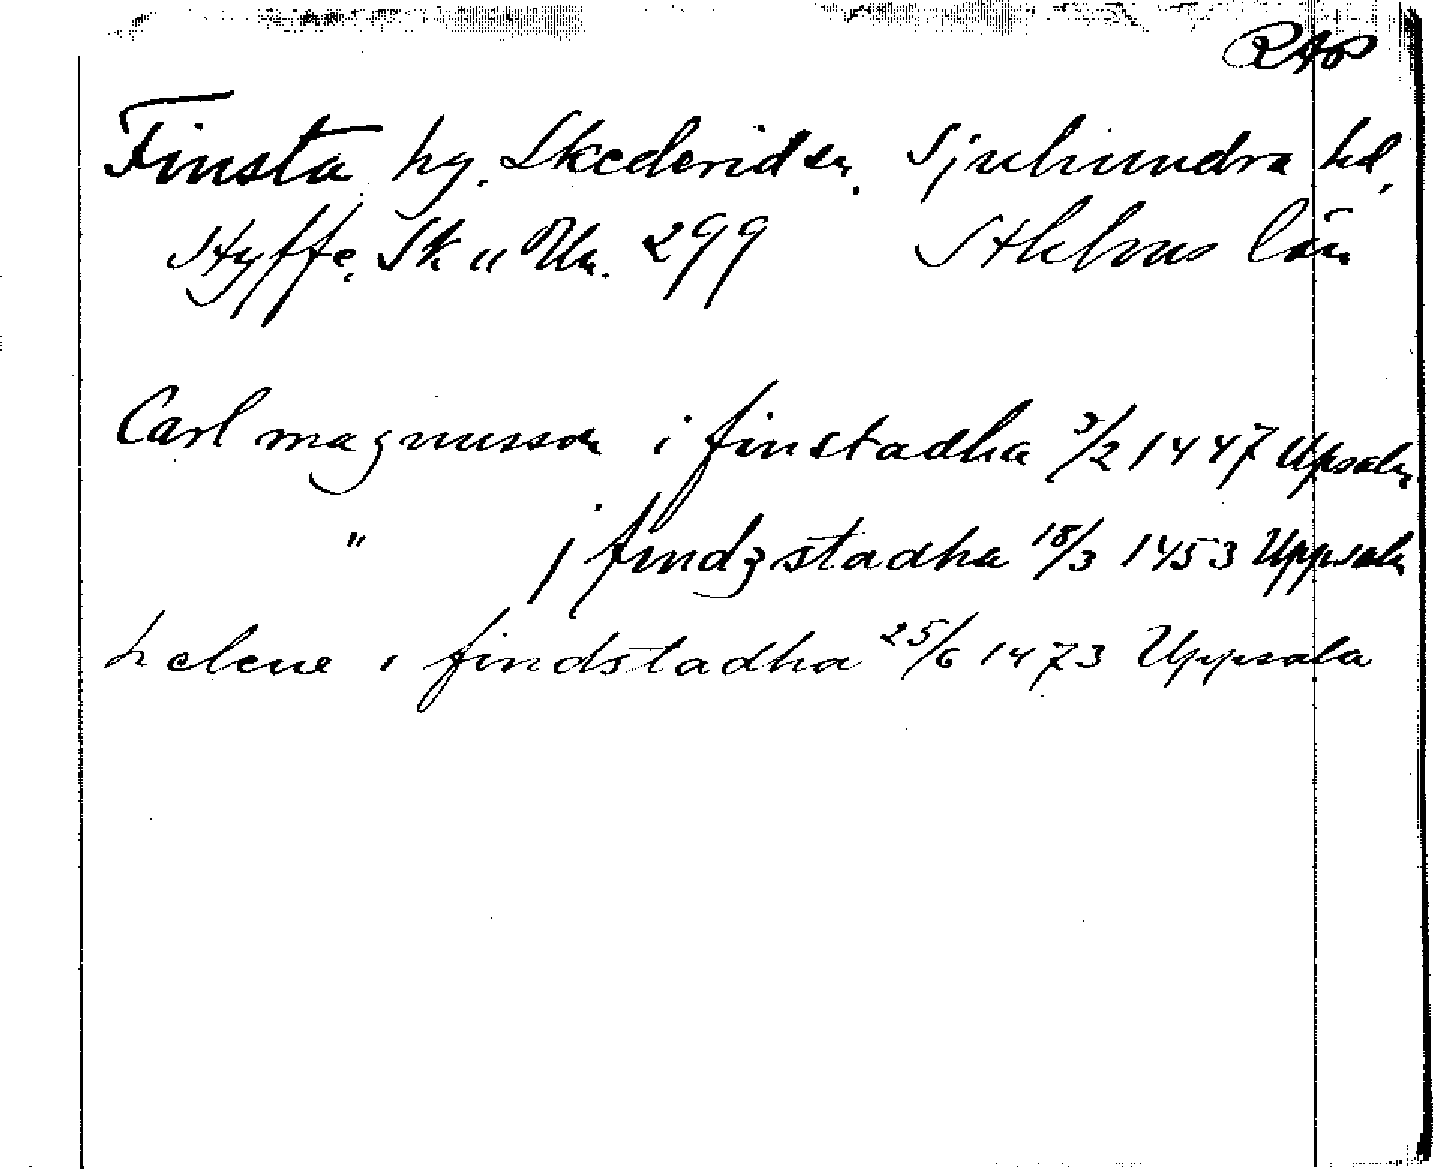 RAP
Finsta hg. Skederids sn. Sjuhundra hd,
Styffe, Sk u Un. 299 Sthlms län
Carl magnusson i finstadha 3/2 1447 Upsala
" j findzstadha 18/3 1453 Uppsala
helene i findstadha 25/6 1473 Uppsala